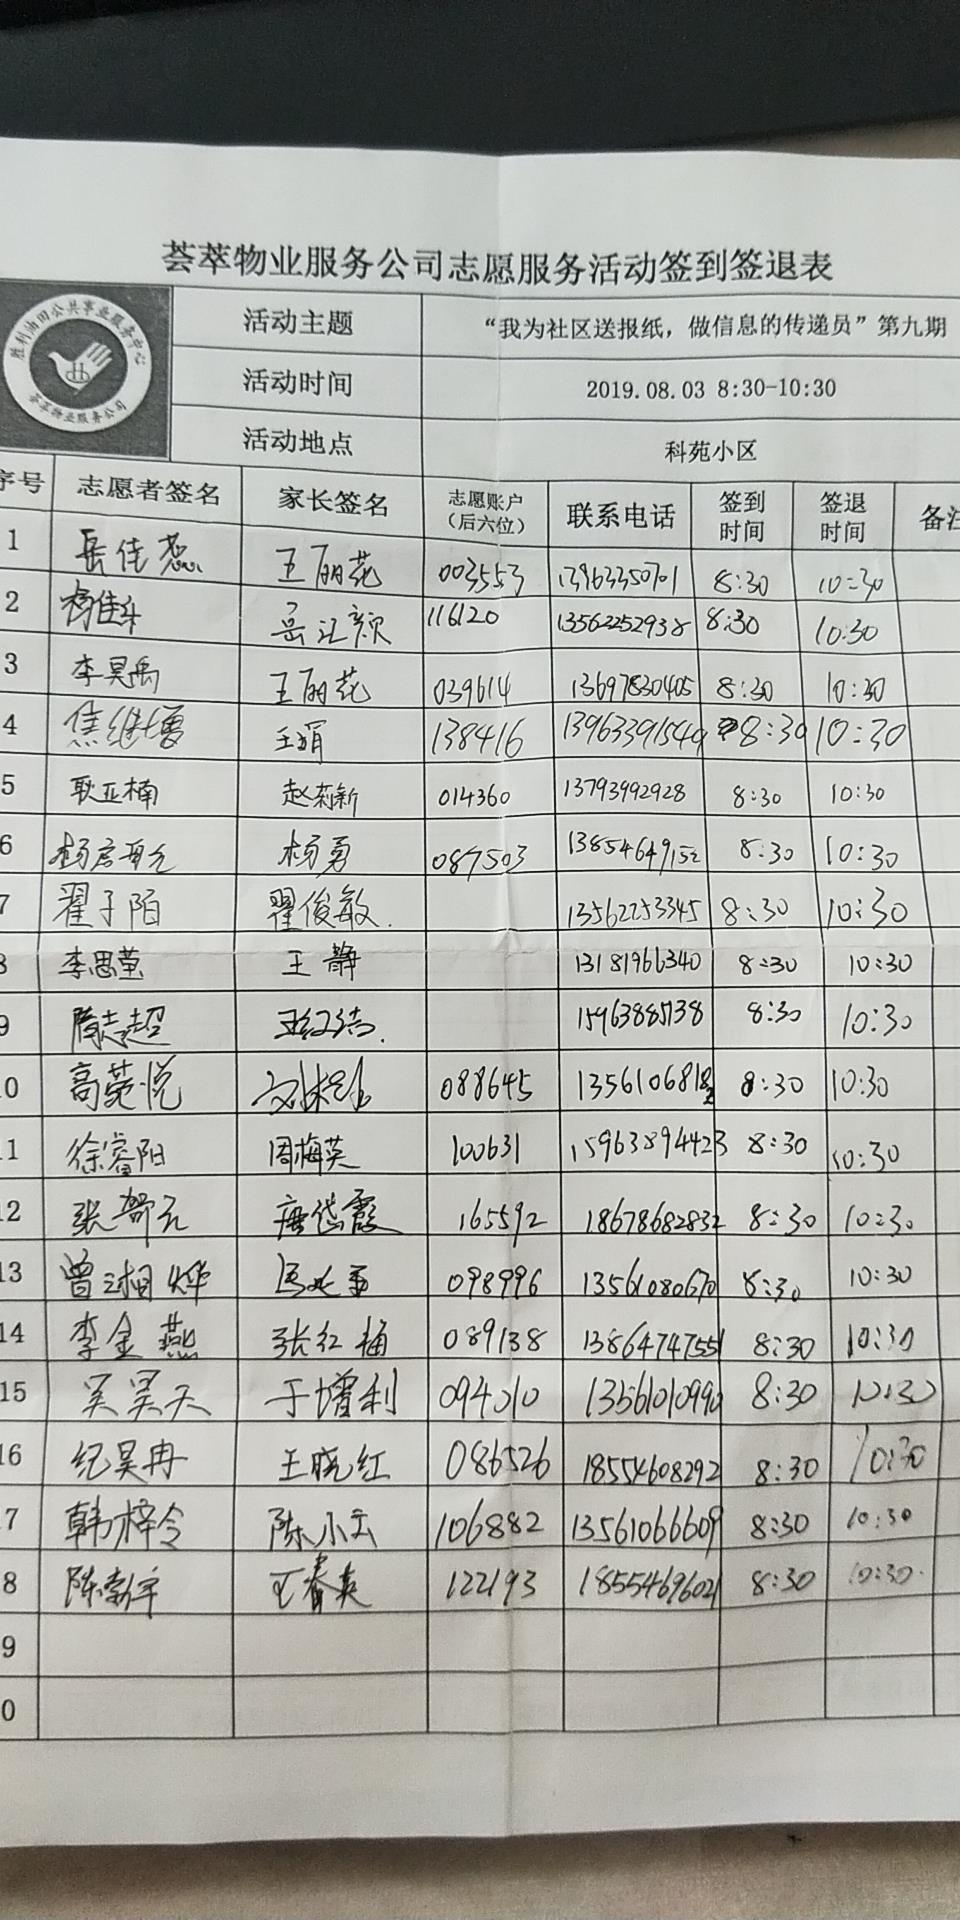 荟萃物业服务公司志愿服务活动签到签退表
胜利油田公共事业服务中心
荟萃物业服务公司
活动主题 “我为社区送报纸，做信息的传递员”第九期
活动时间 2019.08.03 8:30-10:30
活动地点 科苑小区
序号 志愿者签名 家长签名 志愿账户（后六位） 联系电话 签到时间 签退时间 备注
1 岳佳蕊 王丽花 003553 13963350701 8:30 10:30
2 116120 13562252938 8:30 10:30
3 李昊禹 王丽花 039614 13697830405 8:30 10:30
4 焦继 王娟 138416 8:30 10:30
5 耿亚楠 赵新 014360 13793992928 8:30 10:30
6 杨 杨勇 087503 13854649152 8:30 10:30
7 翟子陌 翟俊敏. 13562253345 8:30 10:30
8 李思莹 王静 13181966340 8:30 10:30
9 隋志超 15963885738 8:30 10:30
10 高菀悦 088645 8:30 10:30
11 徐睿阳 周梅英 100631 15963894423 8:30 10:30
12 张 元 唐岱霞 165592 18678682832 8:30 10:30
13 曾湘烨 098996 13561080670 8:30 10:30
14 李金燕 张红梅 089138 13864747551 8:30 10:30
15 吴昊天 于增利 094010 13561010990 8:30 10:30
16 纪昊冉 王晓红 086526 18554608292 8:30 10:30
17 韩梓令 陈小云 106882 13561066609 8:30 10:30
18 陈 宇 王春英 122193 18554696021 8:30 10:30
9
0